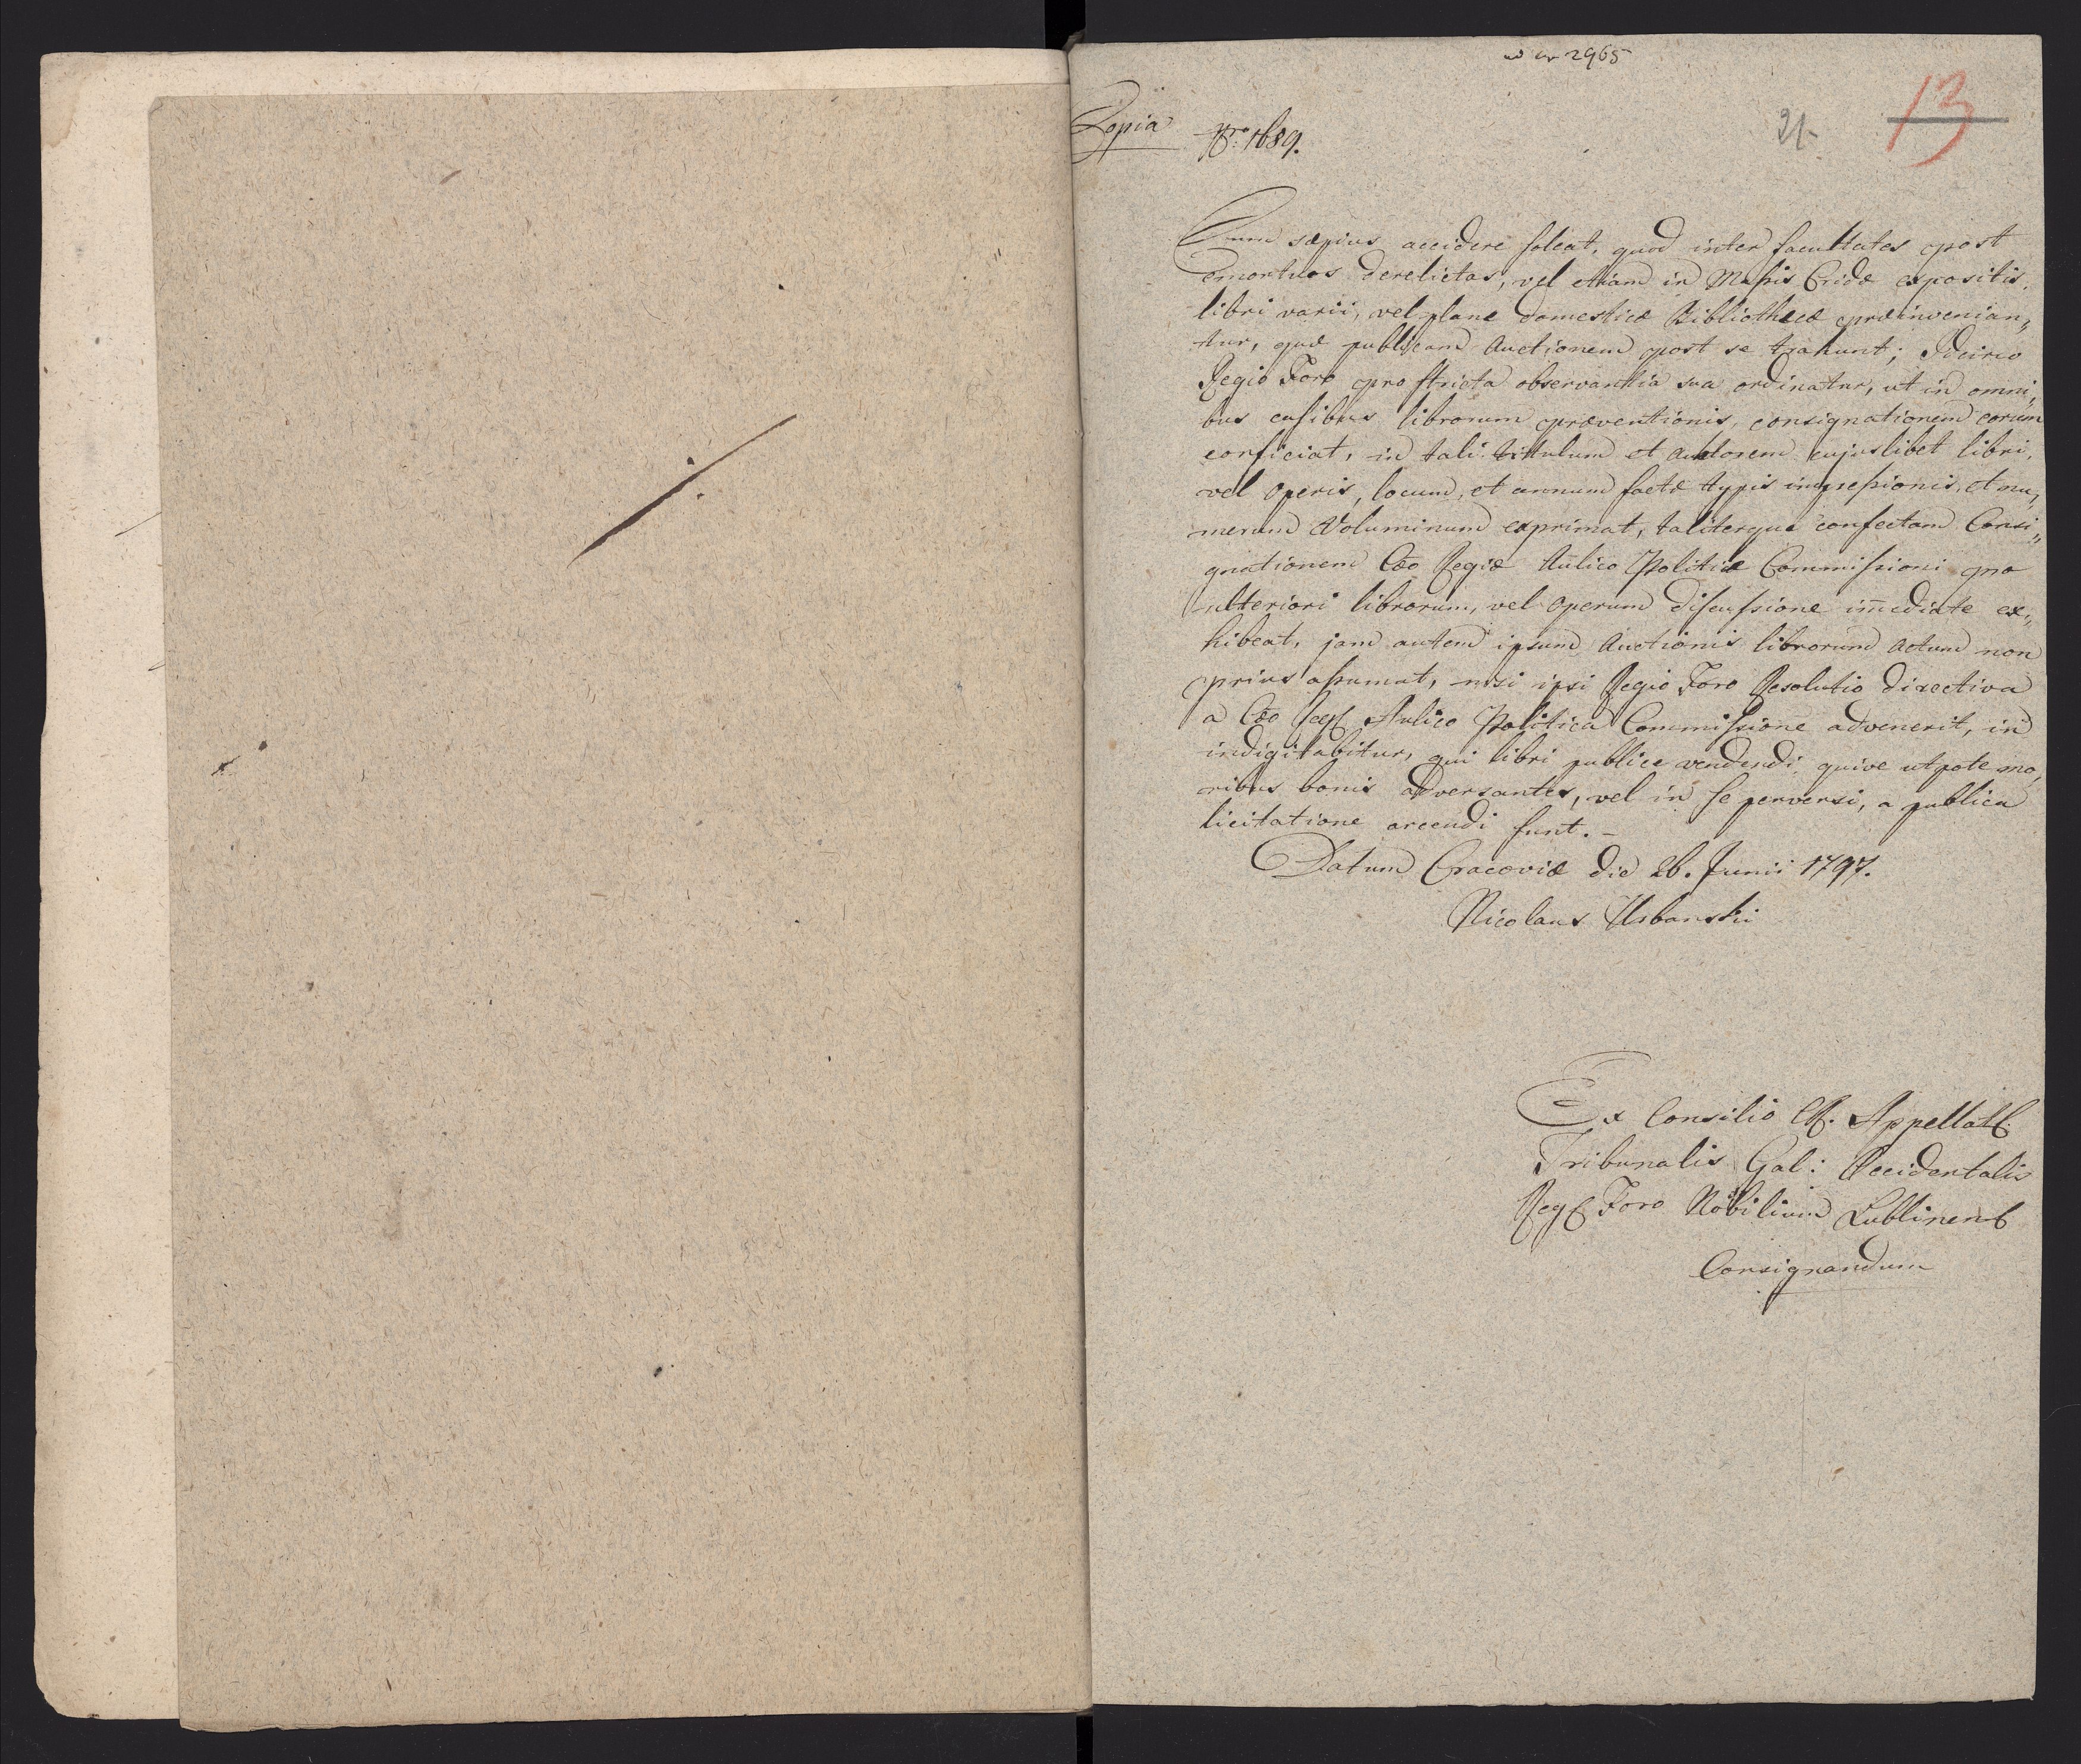 2965
13
21.
Copia Nro: 1689.
Cum sæpius accidere soleat, quod inter facultates post
emortuos derelictas, vel etiam in Massis Cridæ expositis,
libri varii, vel plane domesticæ Bibliothecæ præinvenian„
tur, quæ publicam Auctionem post se trahunt; Idcirco
Regio Foro pro stricta observantia sua ordinatur, ut in omni„
bus casibus librorum præventionis, consignationem eorum
conficiat, in tali tittulum et auctorem cujuslibet libri,
vel Operis, locum, et annum factæ typis impressionis, et nu„
merum Voluminum exprimat, taliterque confectam Consi„
gnationem Cæo Regiæ Aulico Politicæ Commissioni pro
ulteriori librorum, vel Operum discussione im̄ediate ex„
hibeat, jam autem ipsum Auctionis librorum Actum non
prius assumat, nisi ipsi Regio Foro Resolutio directiva
a Cæo Reg. Aulico Politica Commissione advenerit, in
indigitabitur, qui libri publice vendendi, quive utpote mo„
ribus bonis adversantes, vel in se perversi, a publica
licitatione arcendi sunt. –
Datum Cracoviæ die 26. Junii 1797.
Nicolaus Urbanski
Ex Consilio CR. Appellat.
Tribunalis Gal: Occidentalis
Reg. Foro Nobilium Lublinens.
Consignandum